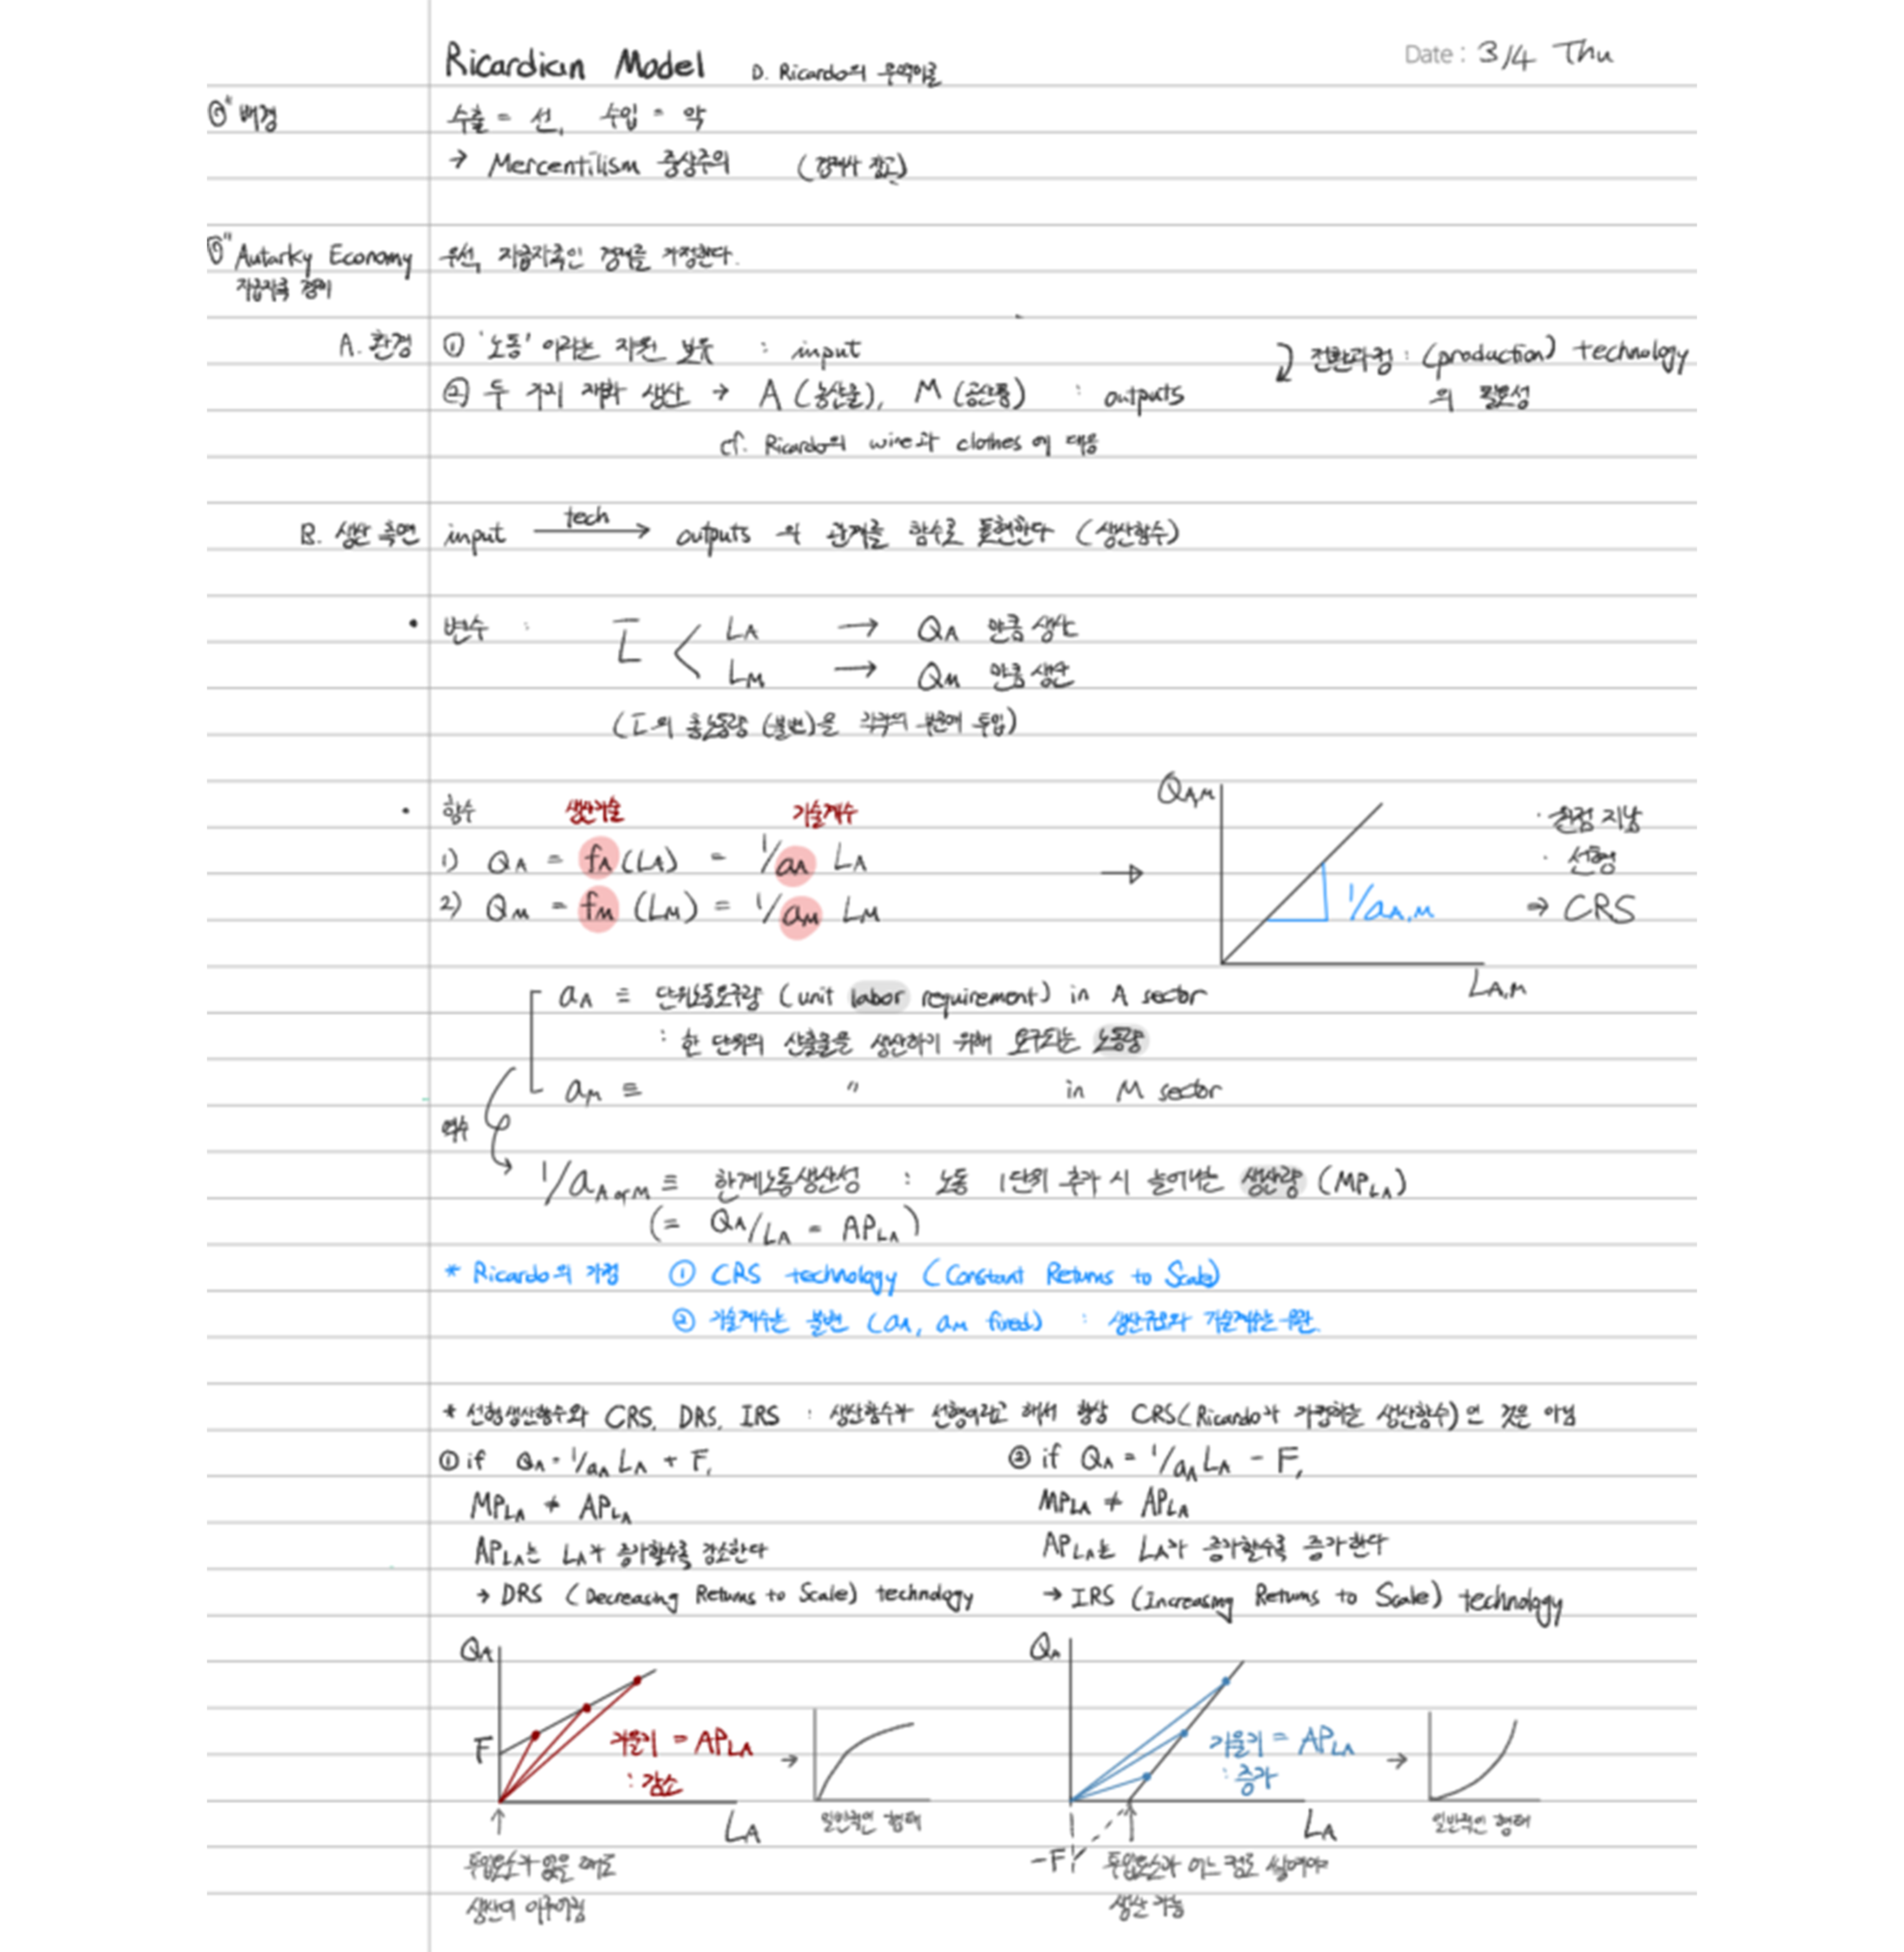 Ricardian Model D. Ricardo의 무역이론
Date : 3/4 Thu
배경 수출 = 선, 수입 = 악
→ Mercentilism 중상주의 (경제사 참고)
Autarky Economy 우선, 자급자족인 경제를 가정한다.
자급자족 경제
A. 환경 ① '노동' 이라는 자원 보유 : input
② 두 가지 재화 생산 → A (농산물), M (공산품) : outputs
전환과정 : (production) technology
의 필요성
cf. Ricardo의 wine과 clothes에 대응
B. 생산 측면 input tech → outputs 의 관계를 함수로 표현한다 (생산함수)
• 변수 : L̅ < LA → QA 만큼 생산
LM → QM 만큼 생산
(L̅의 총노동량 (불변)을 각각의 부문에 투입)
• 함수 생산기술 기술계수
1) QA = fA (LA) = 1/aA LA
2) QM = fM (LM) = 1/aM LM
→
QA,M
1/aA,M
LA,M
· 원점 지남
· 선형
⇒ CRS
aA ≡ 단위노동요구량 (unit labor requirement) in A sector
: 한 단위의 산출물을 생산하기 위해 요구되는 노동량
aM ≡ " in M sector
역수
1/aA or M ≡ 한계노동생산성 : 노동 1단위 추가 시 늘어나는 생산량 (MPLA)
(= QA/LA = APLA)
* Ricardo의 가정 ① CRS technology (Constant Returns to Scale)
② 기술계수는 불변 (aA, aM fixed) : 생산규모와 기술계수는 무관.
* 선형생산함수와 CRS, DRS, IRS : 생산함수가 선형이라고 해서 항상 CRS(Ricardo가 가정하는 생산함수)인 것은 아님
① if QA = 1/aA LA + F,
MPLA ≠ APLA
APLA는 LA가 증가할수록 감소한다
→ DRS (Decreasing Returns to Scale) technology
② if QA = 1/aA LA - F,
MPLA ≠ APLA
APLA는 LA가 증가할수록 증가한다
→ IRS (Increasing Returns to Scale) technology
QA
F
기울기 = APLA
: 감소
→
LA
일반적인 형태
투입요소가 없을 때도
생산이 이루어짐
QA
기울기 = APLA
: 증가
→
LA
일반적인 형태
-F
투입요소가 어느 정도 쌓여야
생산 가능